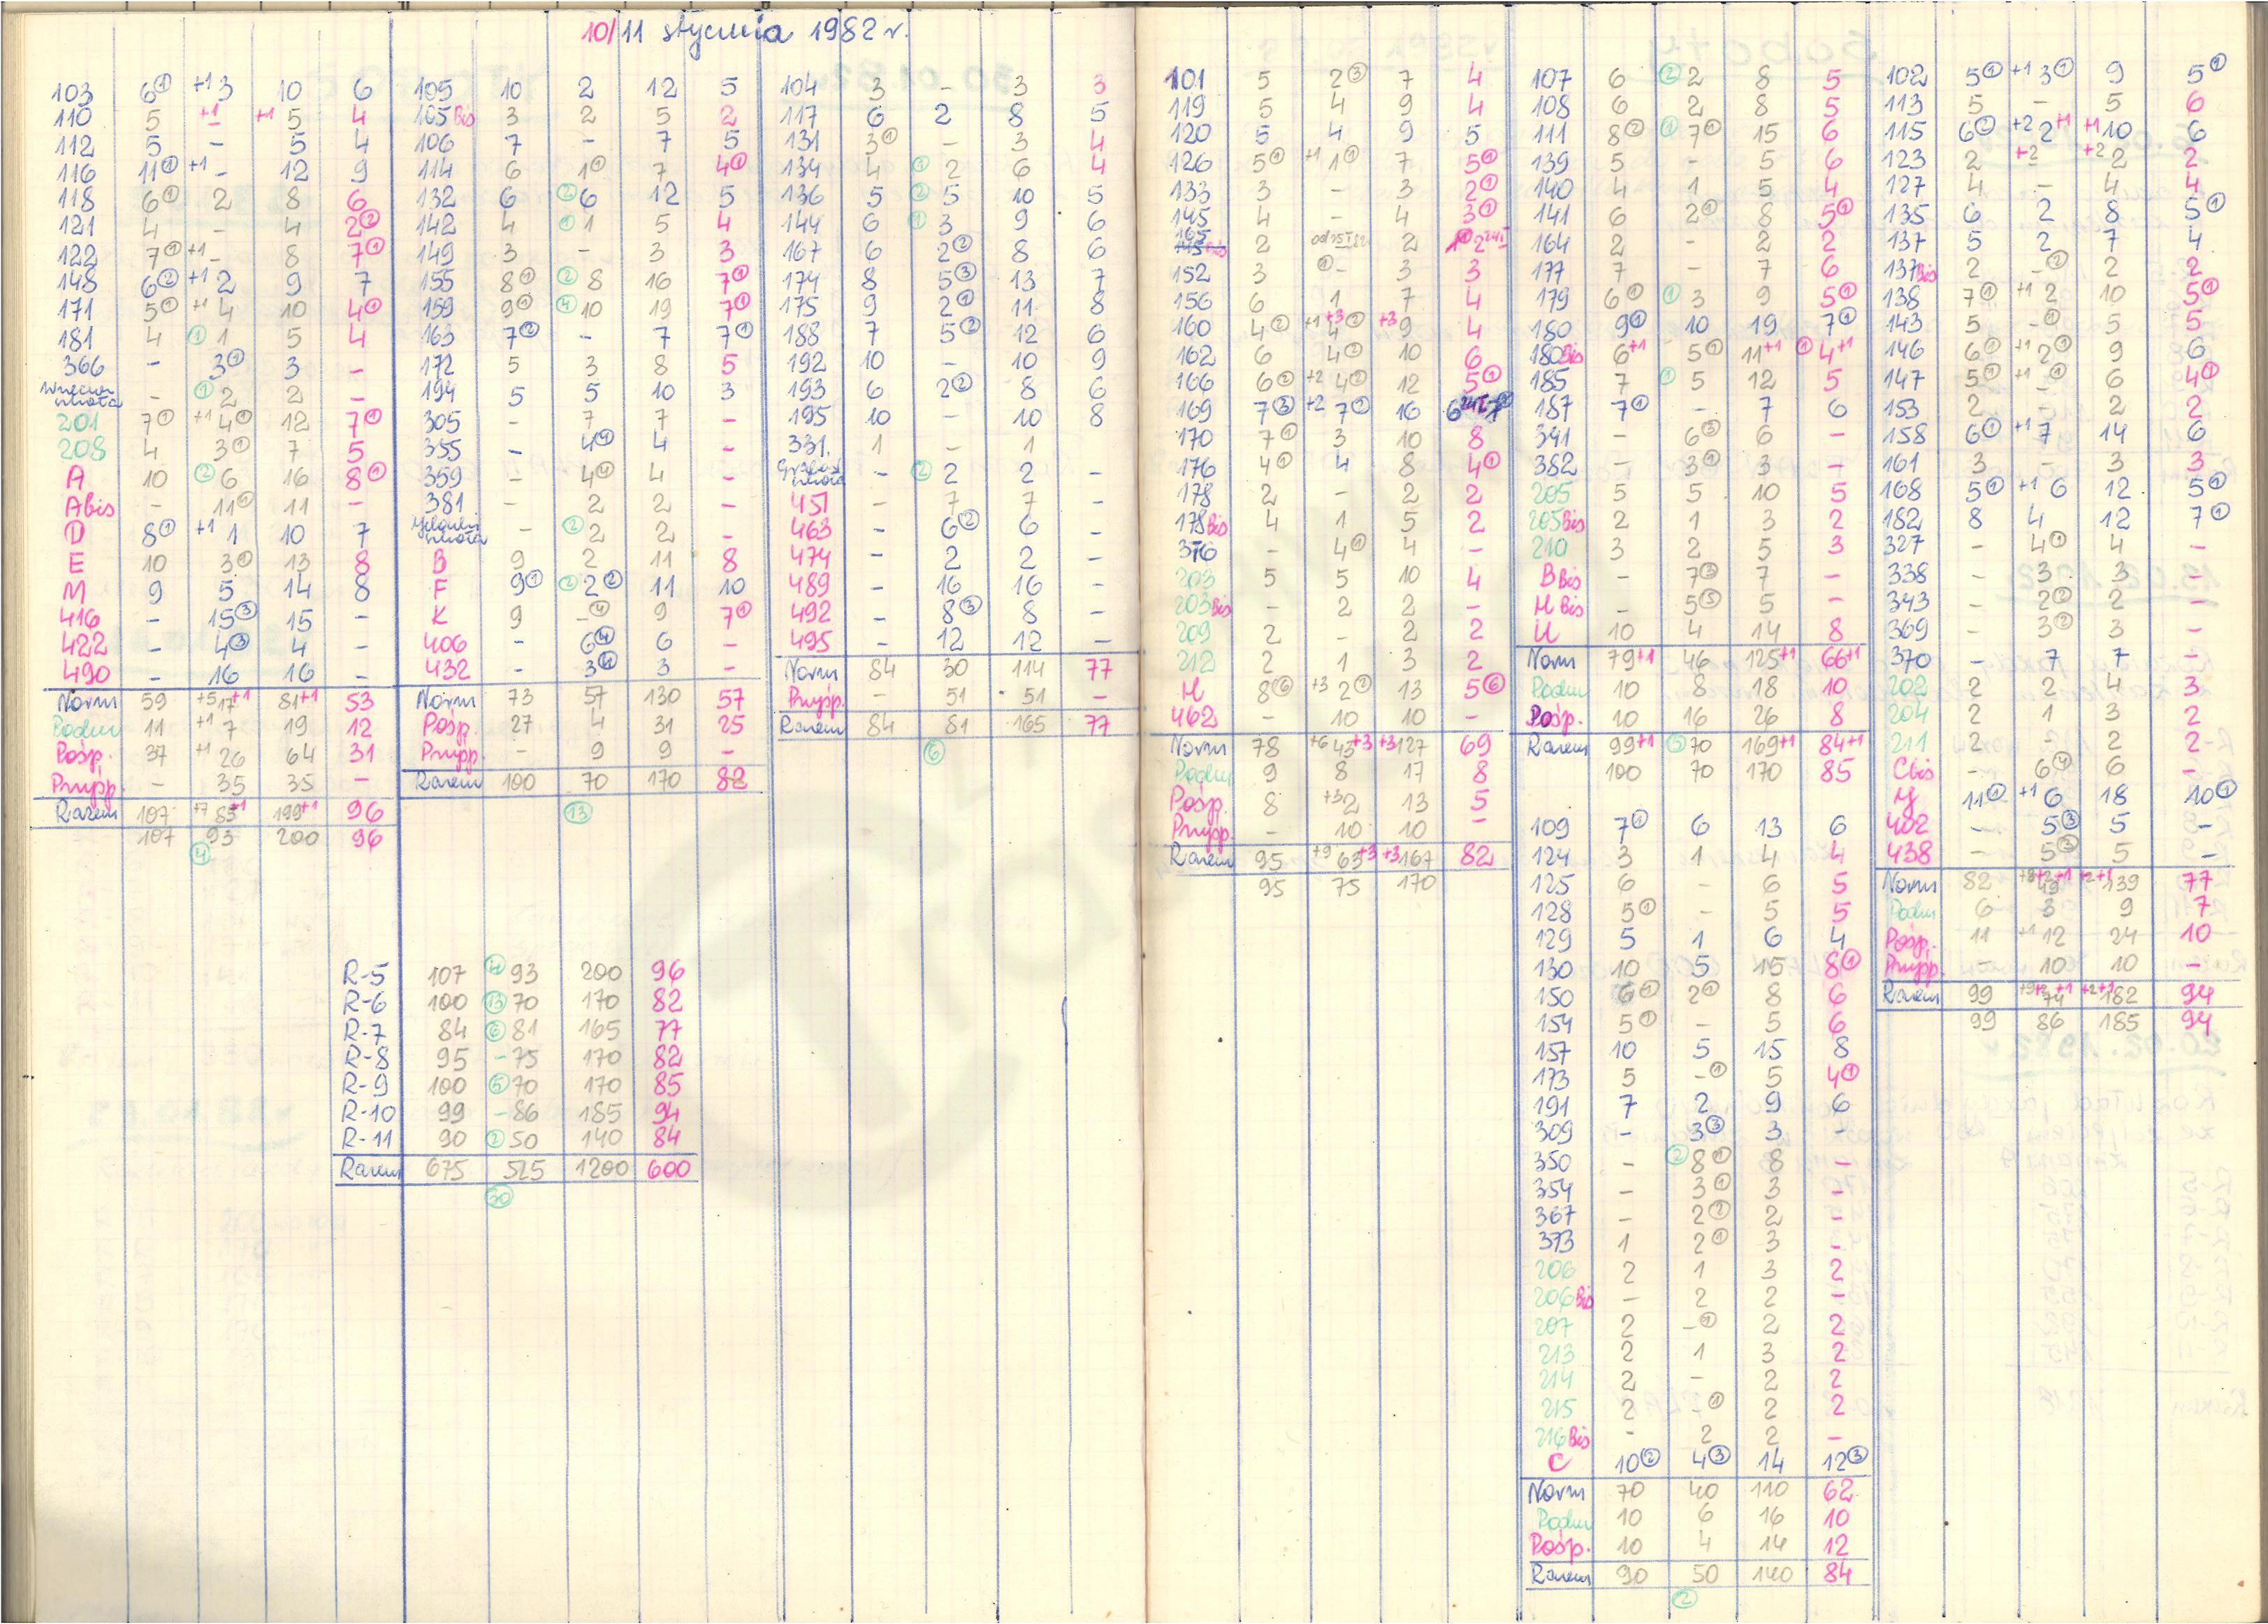 10/11 stycznia 1982 r.
103 6① +1 3 10 6
110 5 +1 - +1 5 4
112 5 - 5 4
116 11① +1 - 12 9
118 6① 2 8 6
121 4 - 4 2②
122 7① +1 - 8 7①
148 6② +1 2 9 7
171 5① +1 4 10 4①
181 4 ① 1 5 4
366 - 3① 3 -
- ① 2 2 -
201 7① +1 4① 12 7①
208 4 3① 7 5
A 10 ② 6 16 8①
Abis - 11① 11 -
D 8① +1 1 10 7
E 10 3① 13 8
M 9 5 14 8
416 - 15③ 15 -
422 - 4③ 4 -
490 - 16 16 -
Norm 59 +5 17+1 81+1 53
Podm 11 +1 7 19 12
Pośp. 37 +1 26 64 31
Przysp. - 35 35 -
Razem 107 +7 85+1 199+1 96
107 93 200 96
④
105 10 2 12 5
105 Bis 3 2 5 2
106 7 - 7 5
114 6 1① 7 4①
132 6 ② 6 12 5
142 4 ① 1 5 4
149 3 - 3 3
155 8① ② 8 16 7①
159 9① ④ 10 19 7①
163 7② - 7 7①
172 5 3 8 5
194 5 5 10 3
305 - 7 7 -
355 - 4④ 4 -
359 - 4④ 4 -
381 - 2 2 -
- ② 2 2 -
B 9 2 11 8
F 9① ② 2② 11 10
K 9 -④ 9 7①
406 - 6④ 6 -
432 - 3④ 3 -
Norm 73 57 130 57
Pośp. 27 4 31 25
Przysp. - 9 9 -
Razem 100 70 170 82
⑬
104 3 - 3 3
117 6 2 8 5
131 3① - 3 4
134 4 ① 2 6 4
136 5 ② 5 10 5
144 6 ① 3 9 6
167 6 2② 8 6
174 8 5③ 13 7
175 9 2① 11 8
188 7 5② 12 6
192 10 - 10 9
193 6 2② 8 6
195 10 - 10 8
331. 1 - 1
- ② 2 2 -
451 - 7 7 -
463 - 6② 6 -
474 - 2 2 -
489 - 16 16 -
492 - 8③ 8 -
495 - 12 12 -
Norm 84 30 114 77
Przysp. - 51 51 -
Razem 84 81 165 77
⑥
R-5 107 ④ 93 200 96
R-6 100 ⑬ 70 170 82
R-7 84 ⑥ 81 165 77
R-8 95 - 75 170 82
R-9 100 ⑤ 70 170 85
R-10 99 - 86 185 94
R-11 90 ② 50 140 84
Razem 675 525 1200 600
㉚
101 5 2③ 7 4
119 5 4 9 4
120 5 4 9 5
126 5① +1 1① 7 5①
133 3 - 3 2①
145 4 - 4 3①
165 2 2
152 3 ①- 3 3
156 6 1 7 4
160 4② +1 +3 4② +3 9 4
162 6 4② 10 6
166 6② +2 4② 12 5①
169 7③ +2 7② 16
170 7① 3 10 8
176 4① 4 8 4①
178 2 - 2 2
178 Bis 4 1 5 2
376 - 4① 4 -
203 5 5 10 4
203 Bis - 2 2 -
209 2 - 2 2
212 2 1 3 2
H 8⑥ +3 2② 13 5⑥
462 - 10 10 -
Norm 78 +6 43+3 +3 127 69
Podm 9 8 17 8
Pośp. 8 +3 2 13 5
Przysp. - 10 10 -
Razem 95 +9 63+3 +3 167 82
95 75 170
107 6 ② 2 8 5
108 6 2 8 5
111 8② ① 7① 15 6
139 5 - 5 6
140 4 1 5 4
141 6 2① 8 5①
164 2 - 2 2
177 7 - 7 6
179 6① ① 3 9 5①
180 9① 10 19 7①
180 Bis 6+1 5① 11+1 ① 4+1
185 7 ① 5 12 5
187 7① - 7 6
341 - 6③ 6 -
382 - 3① 3 -
205 5 5 10 5
205 Bis 2 1 3 2
210 3 2 5 3
B Bis - 7③ 7 -
M Bis - 5⑤ 5 -
U 10 4 14 8
Norm 79+1 46 125+1 66+1
Podm 10 8 18 10
Pośp. 10 16 26 8
Razem 99+1 ⑤ 70 169+1 84+1
100 70 170 85
109 7① 6 13 6
124 3 1 4 4
125 6 - 6 5
128 5① - 5 5
129 5 1 6 4
130 10 5 15 8①
150 6① 2① 8 6
154 5① - 5 6
157 10 5 15 8
173 5 -① 5 4①
191 7 2 9 6
309 - 3③ 3 -
350 - ② 8① 8 -
354 - 3① 3 -
367 - 2② 2 -
373 1 2① 3 -
206 2 1 3 2
206 Bis - 2 2 -
207 2 -① 2 2
213 2 1 3 2
214 2 - 2 2
215 2 -① 2 2
216 Bis - 2 2 -
C 10② 4③ 14 12③
Norm 70 40 110 62
Podm 10 6 16 10
Pośp. 10 4 14 12
Razem 90 50 140 84
②
102 5① +1 3① 9 5①
113 5 - 5 6
115 6② +2 2+1 +1 10 6
123 2 +2 +2 2 2
127 4 - 4 4
135 6 2 8 5①
137 5 2 7 4
137 Bis 2 -② 2 2
138 7① +1 2 10 5①
143 5 -① 5 5
146 6① +1 2① 9 6
147 5① +1 -① 6 4①
153 2 - 2 2
158 6① +1 7 14 6
161 3 - 3 3
168 5① +1 6 12 5①
182 8 4 12 7①
327 - 4① 4 -
338 - 3 3 -
343 - 2② 2 -
369 - 3② 3 -
370 - 7 7 -
202 2 2 4 3
204 2 1 3 2
211 2 - 2 2
Cbis - 6④ 6 -
Y 11① +1 6 18 10①
402 - 5③ 5 -
438 - 5③ 5 -
Norm 82 +8 +2 49 +1 +2+1 139 77
Podm 6 3 9 7
Pośp. 11 +1 12 24 10
Przysp. - 10 10 -
Razem 99 +9 +2 74 +1 +2+1 182 94
99 86 185 94